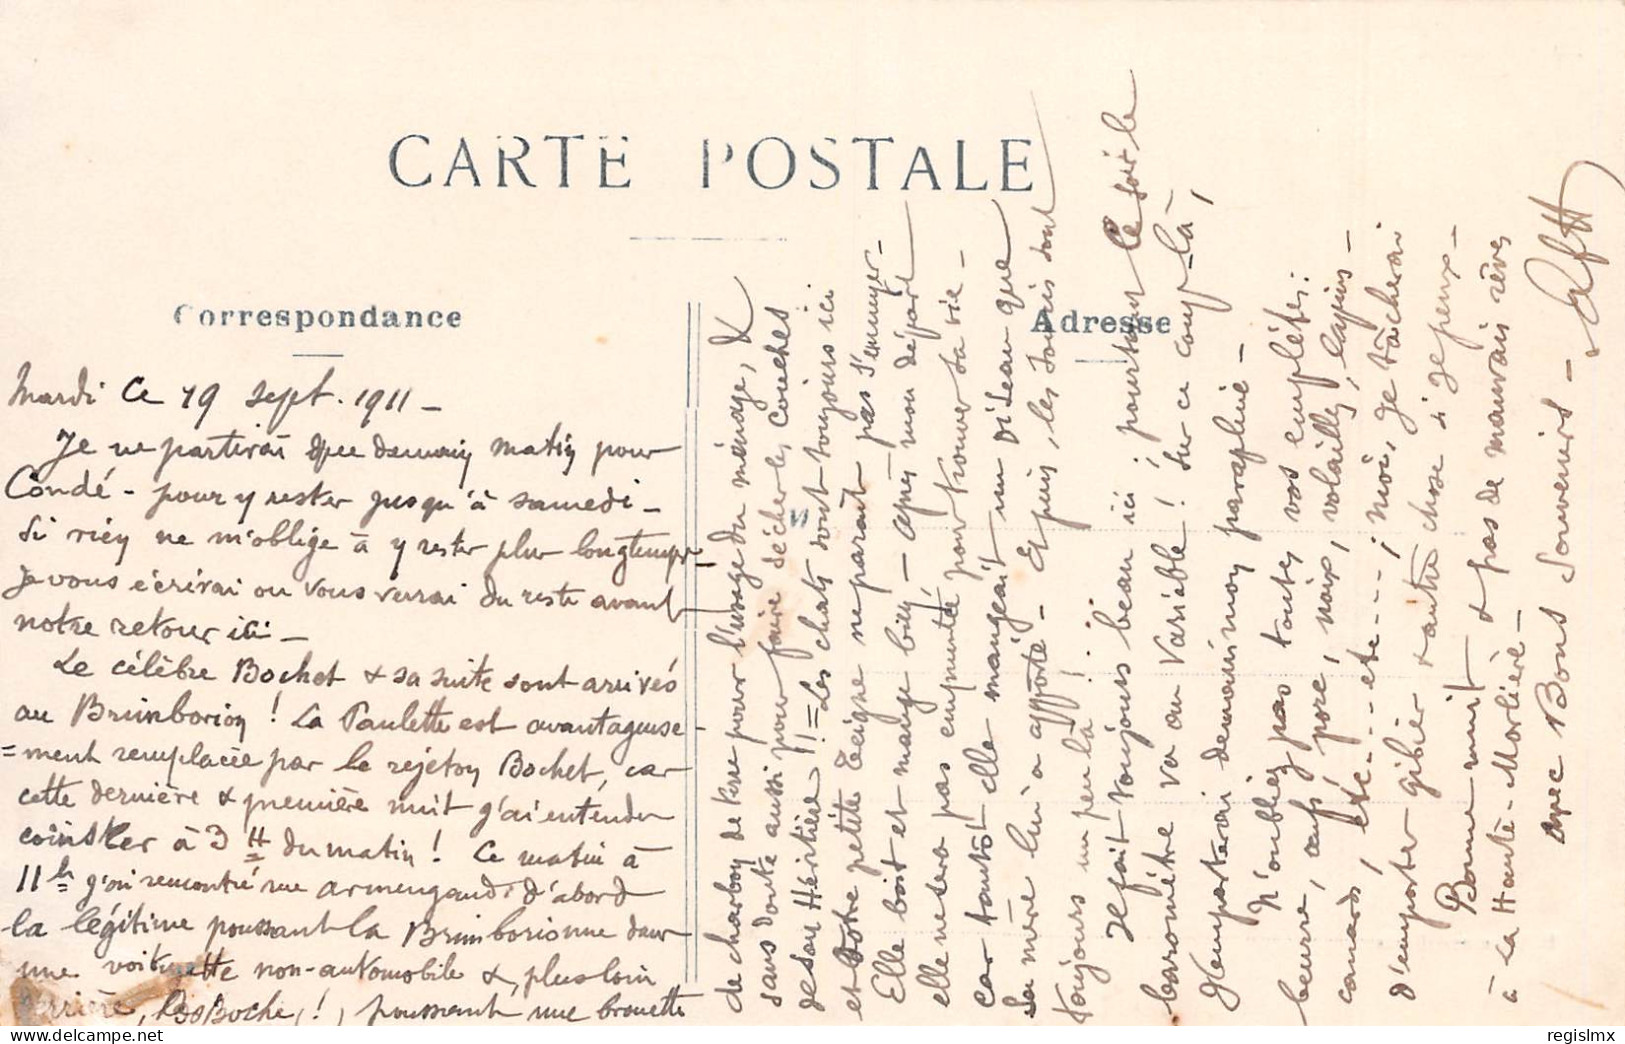 CARTE POSTALE
Correspondance
Adresse
Mardi ce 19 sept. 1911 -
Je ne partirai que demain matin pour
Condé - pour y rester jusqu'à samedi -
Si rien ne m'oblige à y rester plus longtemps -
Je vous écrirai ou vous verrai du reste avant
notre retour ici -
Le célèbre Bochet & sa suite sont arrivés
au Brimborion ! La Paulette est avantageuse-
=ment remplacée par le rejeton Bochet, car
cette dernière & première nuit j'ai entendu
à 3 H du matin ! Ce matin à
11h j'ai rencontré rue Armengaud, d'abord
la légitime poussant la Brimborionne dans
une voiturette non-automobile &, plus loin
derrière, Boche, !, poussant une brouette
de charbon de terre pour l'usage du ménage, &
sans doute aussi pour faire sécher les couches
de son Héritière !! = Les chats sont toujours ici
et votre petite Teigne ne paraît pas s'ennuyer -
Elle boit et mange bien, - après mon départ
elle ne sera pas empruntée pour trouver sa vie -
car tantôt elle mangeait un oiseau que
sa mère lui a apporté - Et puis, les souris sont
toujours un peu là ! . .
Il fait toujours beau ici ; pourtant ce soir le
baromètre va au Variable ! Sur ce coup-là,
J'emporterai demain mon parapluie -
N'oubliez pas toutes vos emplettes :
beurre, œufs, porc, noix, volailles, lapins -
canards, etc - - - etc - - - ; moi, je tâcherai
d'emporter gibier & autre chose si je peux -
Bonne nuit & pas de mauvais rêves
à La Haute-Morlière -
avec Bons Souvenirs -
regislmx